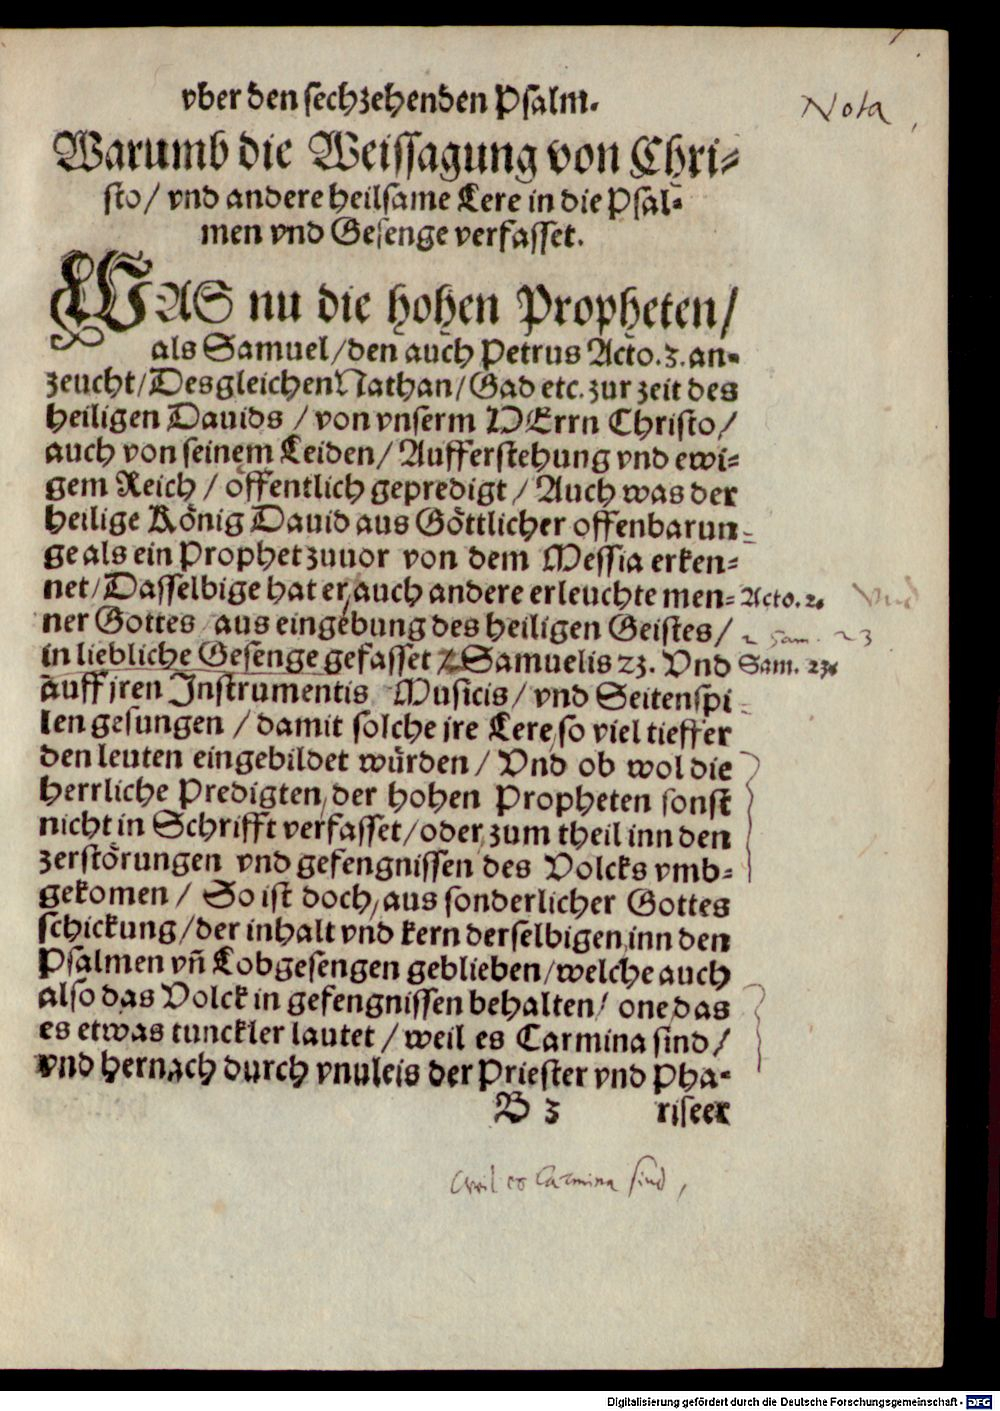 vber den sechzehenden Psalm.
Nota
Warumb die Weissagung von Chri=
sto/ vnd andere heilsame Lere in die Psal=
men vnd Gesenge verfasset.
WAS nu die hohen Propheten/
als Samuel/den auch Petrus Acto.3.an=
zeucht/Desgleichen Nathan/Gad etc.zur zeit des
heiligen Dauids /von vnserm HErrn Christo/
auch von seinem Leiden/ Aufferstehung vnd ewi=
gem Reich / öffentlich gepredigt / Auch was der
heilige König Dauid aus Göttlicher offenbarun=
ge als ein Prophet zuuor von dem Messia erken=
net/Dasselbige hat er/auch andere erleuchte men=
Acto.2.
ner Gottes aus eingebung des heiligen Geistes/
2 Sam. 23
in liebliche Gesenge gefasset 2.Samuelis 23. Vnd
Sam. 23.
auff jren Instrumentis Musicis/ vnd Seitenspi=
len gesungen /damit solche jre Lere/so viel tieffer
den leuten eingebildet würden/ Vnd ob wol die
herrliche Predigten/der hohen Propheten sonst
nicht in Schrifft verfasset/oder/zum theil inn den
zerstörungen vnd gefengnissen des Volcks vmb=
gekomen/ So ist doch/aus sonderlicher Gottes
schickung/der inhalt vnd kern derselbigen/inn den
Psalmen vñ Lobgesengen geblieben/welche auch
also das Volck in gefengnissen behalten/ one das
es etwas tunckler lautet /weil es Carmina sind/
vnd hernach durch vnuleis der Priester vnd Pha=
B 3 riseer
Weil es Carmina sind,
Digitalisierung gefördert durch die Deutsche Forschungsgemeinschaft - DFG